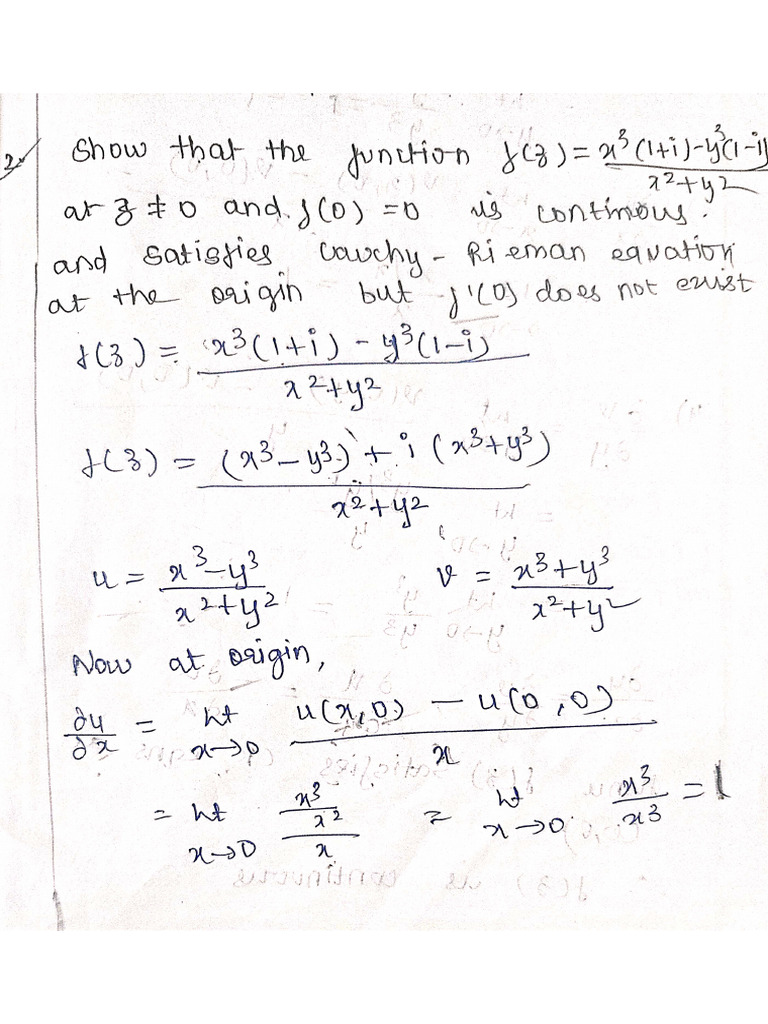 2. Show that the function f(z) = x³(1+i)-y³(1-i)/x²+y²
at z ≠ 0 and f(0) = 0 is continous.
and satisfies Cauchy-Rieman equation
at the origin but f'(0) does not exist
f(z) = x³(1+i) - y³(1-i)/x²+y²
f(z) = (x³-y³) + i(x³+y³)/x²+y²
u = x³-y³/x²+y² v = x³+y³/x²+y²
Now at origin,
∂u/∂x = lt x→0 u(x,0) - u(0,0)/x
= lt x→0 x³/x²/x = lt x→0 x³/x³ = 1